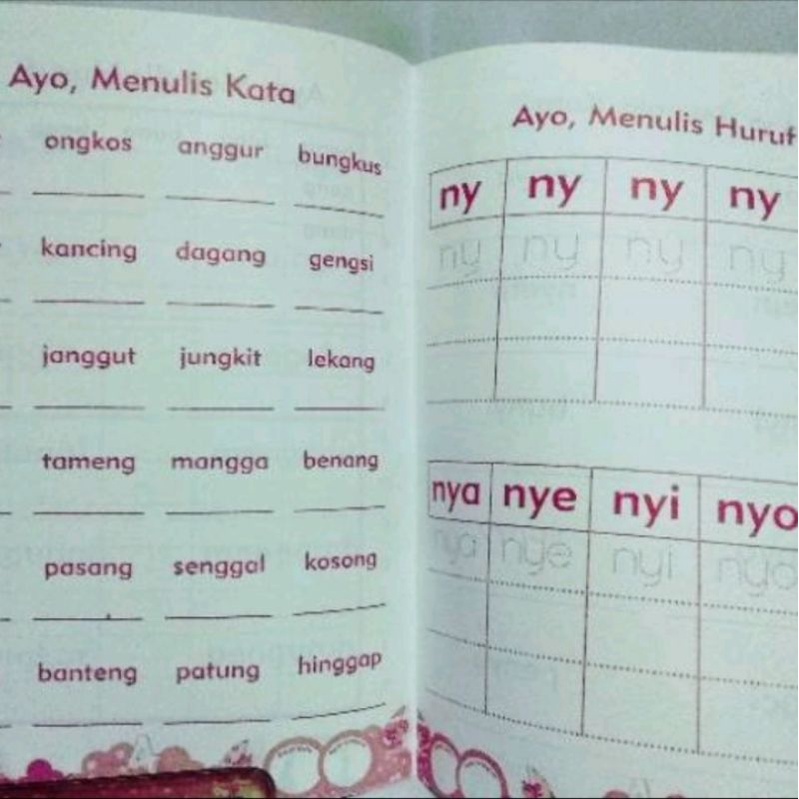 Ayo, Menulis Kata
ongkos anggur bungkus
kancing dagang gengsi
janggut jungkit lekang
tameng mangga benang
pasang senggal kosong
banteng patung hinggap
Ayo, Menulis Huruf
ny ny ny ny
ny ny ny ny
nya nye nyi nyo
nya nye nyi nyo